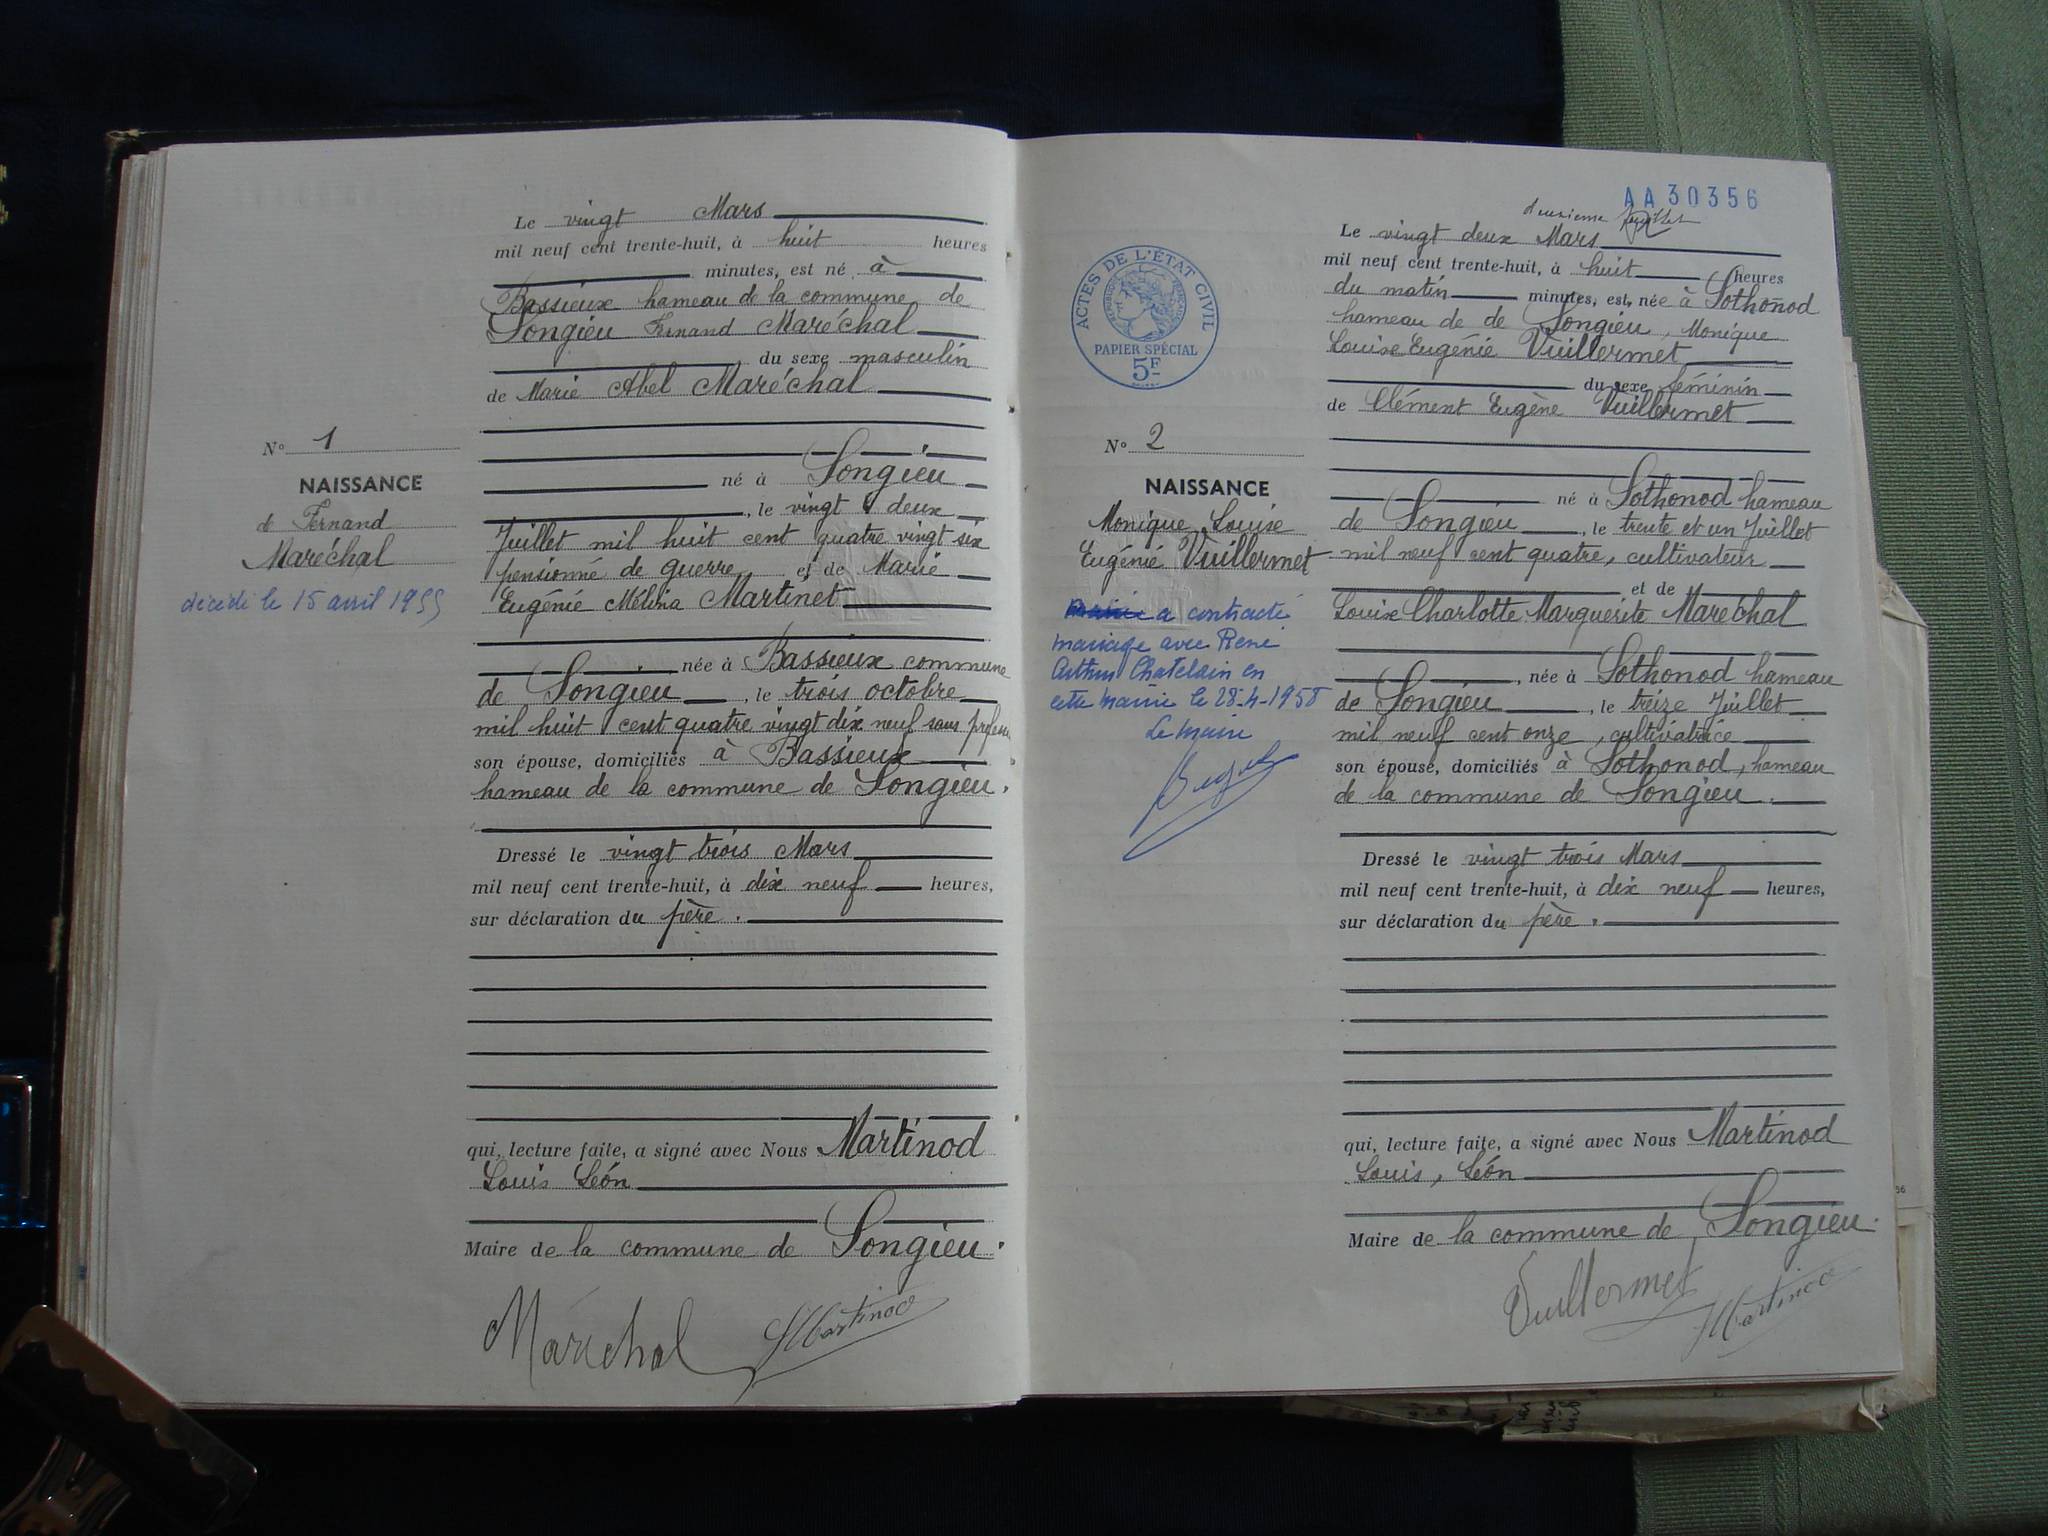 Le vingt Mars
mil neuf cent trente-huit, à huit heures
minutes, est né à
Bassieux hameau de la commune de
Songieu Fernand Maréchal
du sexe masculin
de Marie Abel Maréchal
N° 1
NAISSANCE
de Fernand
Maréchal
décédé le 15 avril 1955
né à Songieu
, le vingt deux
Juillet mil huit cent quatre vingt six
pensionné de guerre et de Marie
Eugénie Mélina Martinet
née à Bassieux commune
de Songieu, le trois octobre
mil huit cent quatre vingt dix neuf sans
son épouse, domiciliés à Bassieux
hameau de la commune de Songieu.
Dressé le vingt trois Mars
mil neuf cent trente-huit, à dix neuf heures,
sur déclaration du père.
qui, lecture faite, a signé avec Nous Martinod
Louis Léon
Maire de la commune de Songieu.
Maréchal Martinod
AA30356
deuxième feuillet
ACTES DE L'ÉTAT CIVIL
RÉPUBLIQUE FRANÇAISE
PAPIER SPÉCIAL
5F
Le vingt deux Mars
mil neuf cent trente-huit, à huit heures
du matin minutes, est née à Sothonod
hameau de de Songieu, Monique
Louise Eugénie Vuillermet
du sexe féminin
de Clément Eugène Vuillermet
N° 2
NAISSANCE
Monique Louise
Eugénie Vuillermet
a contracté
mariage avec René
Arthur Chatelain en
cette mairie le 28-4-1958
Le maire
né à Sothonod hameau
de Songieu, le trente et un Juillet
mil neuf cent quatre, cultivateur
et de
Louise Charlotte Marguerite Maréchal
, née à Sothonod hameau
de Songieu, le treize Juillet
mil neuf cent onze, cultivatrice
son épouse, domiciliés à Sothonod, hameau
de la commune de Songieu.
Dressé le vingt trois Mars
mil neuf cent trente-huit, à dix neuf heures,
sur déclaration du père.
qui, lecture faite, a signé avec Nous Martinod
Louis, Léon
Maire de la commune de Songieu.
Vuillermet Martinod